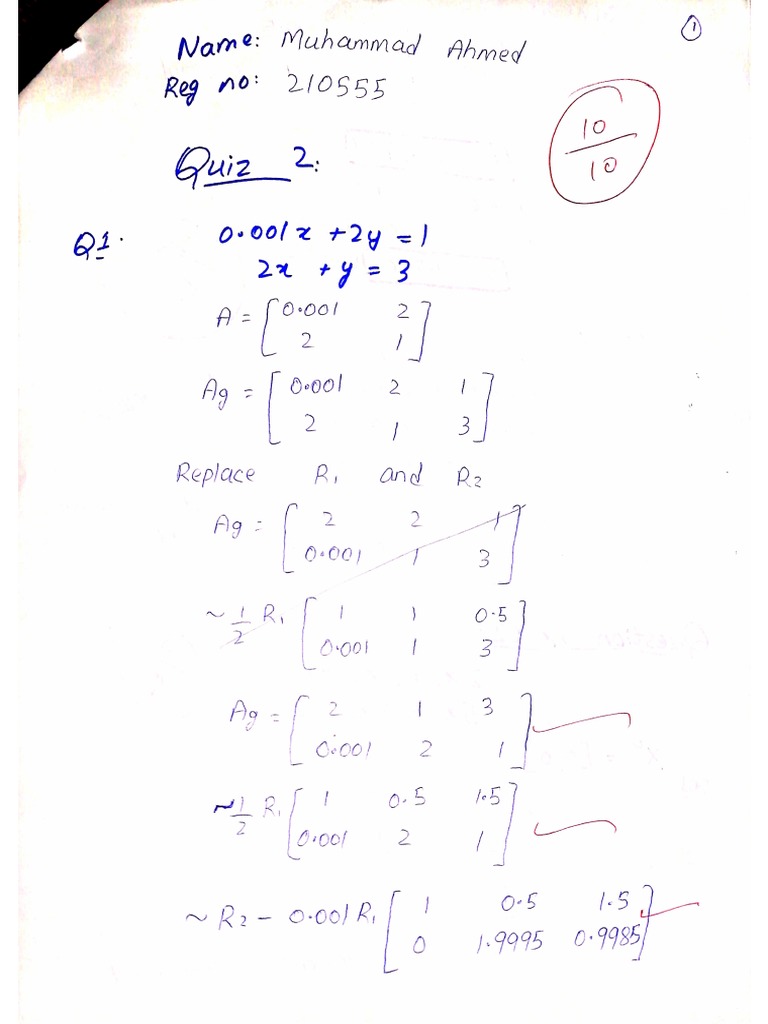 1
Name: Muhammad Ahmed
Reg no: 210555
10/10
Quiz 2:
Q1. 0.001x + 2y = 1
2x + y = 3
A = [0.001 2
2 1]
Ag = [0.001 2 1
2 1 3]
Replace R₁ and R₂
Ag = [2 2 1
0.001 1 3]
~ 1/2 R₁ [1 1 0.5
0.001 1 3]
Ag = [2 1 3
0.001 2 1]
~ 1/2 R₁ [1 0.5 1.5
0.001 2 1]
~ R₂ - 0.001R₁ [1 0.5 1.5
0 1.9995 0.9985]